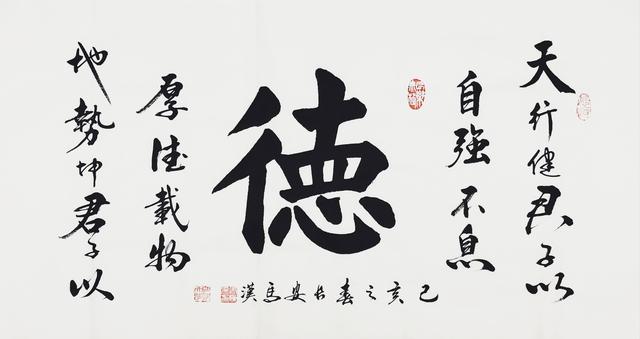 天行健君子以
自強不息
徳
地勢坤君子以
厚德載物
己亥之春長安馬漢